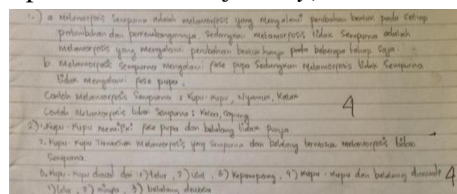 1.) a metamorfosis sempurna adalah metamorfosis yang mengalami perubahan bentuk pada setiap
pertumbuhan dan perkembangannya, sedangkan metamorfosis tidak sempurna adalah
metamorfosis yang mengalami perubahan bentuk hanya pada beberapa tahap saja.
b. Metamorfosis sempurna mengalami fase pupa sedangkan metamorfosis tidak sempurna
tidak mengalami fase pupa.
Contoh metamorfosis sempurna : kupu-kupu, nyamuk, katak
Contoh metamorfosis tidak sempurna : kecoa, capung
4
2) 1. kupu-kupu memiliki fase pupa dan belalang tidak punya
2. kupu-kupu termasuk metamorfosis yang sempurna dan belalang termasuk metamorfosis tidak
sempurna
3. kupu-kupu diawali dari 1) telur, 2) ulat, 3) kepompong, 4) kupu-kupu dan belalang diawali
4
1) telur, 2) nimfa, 3) belalang dewasa